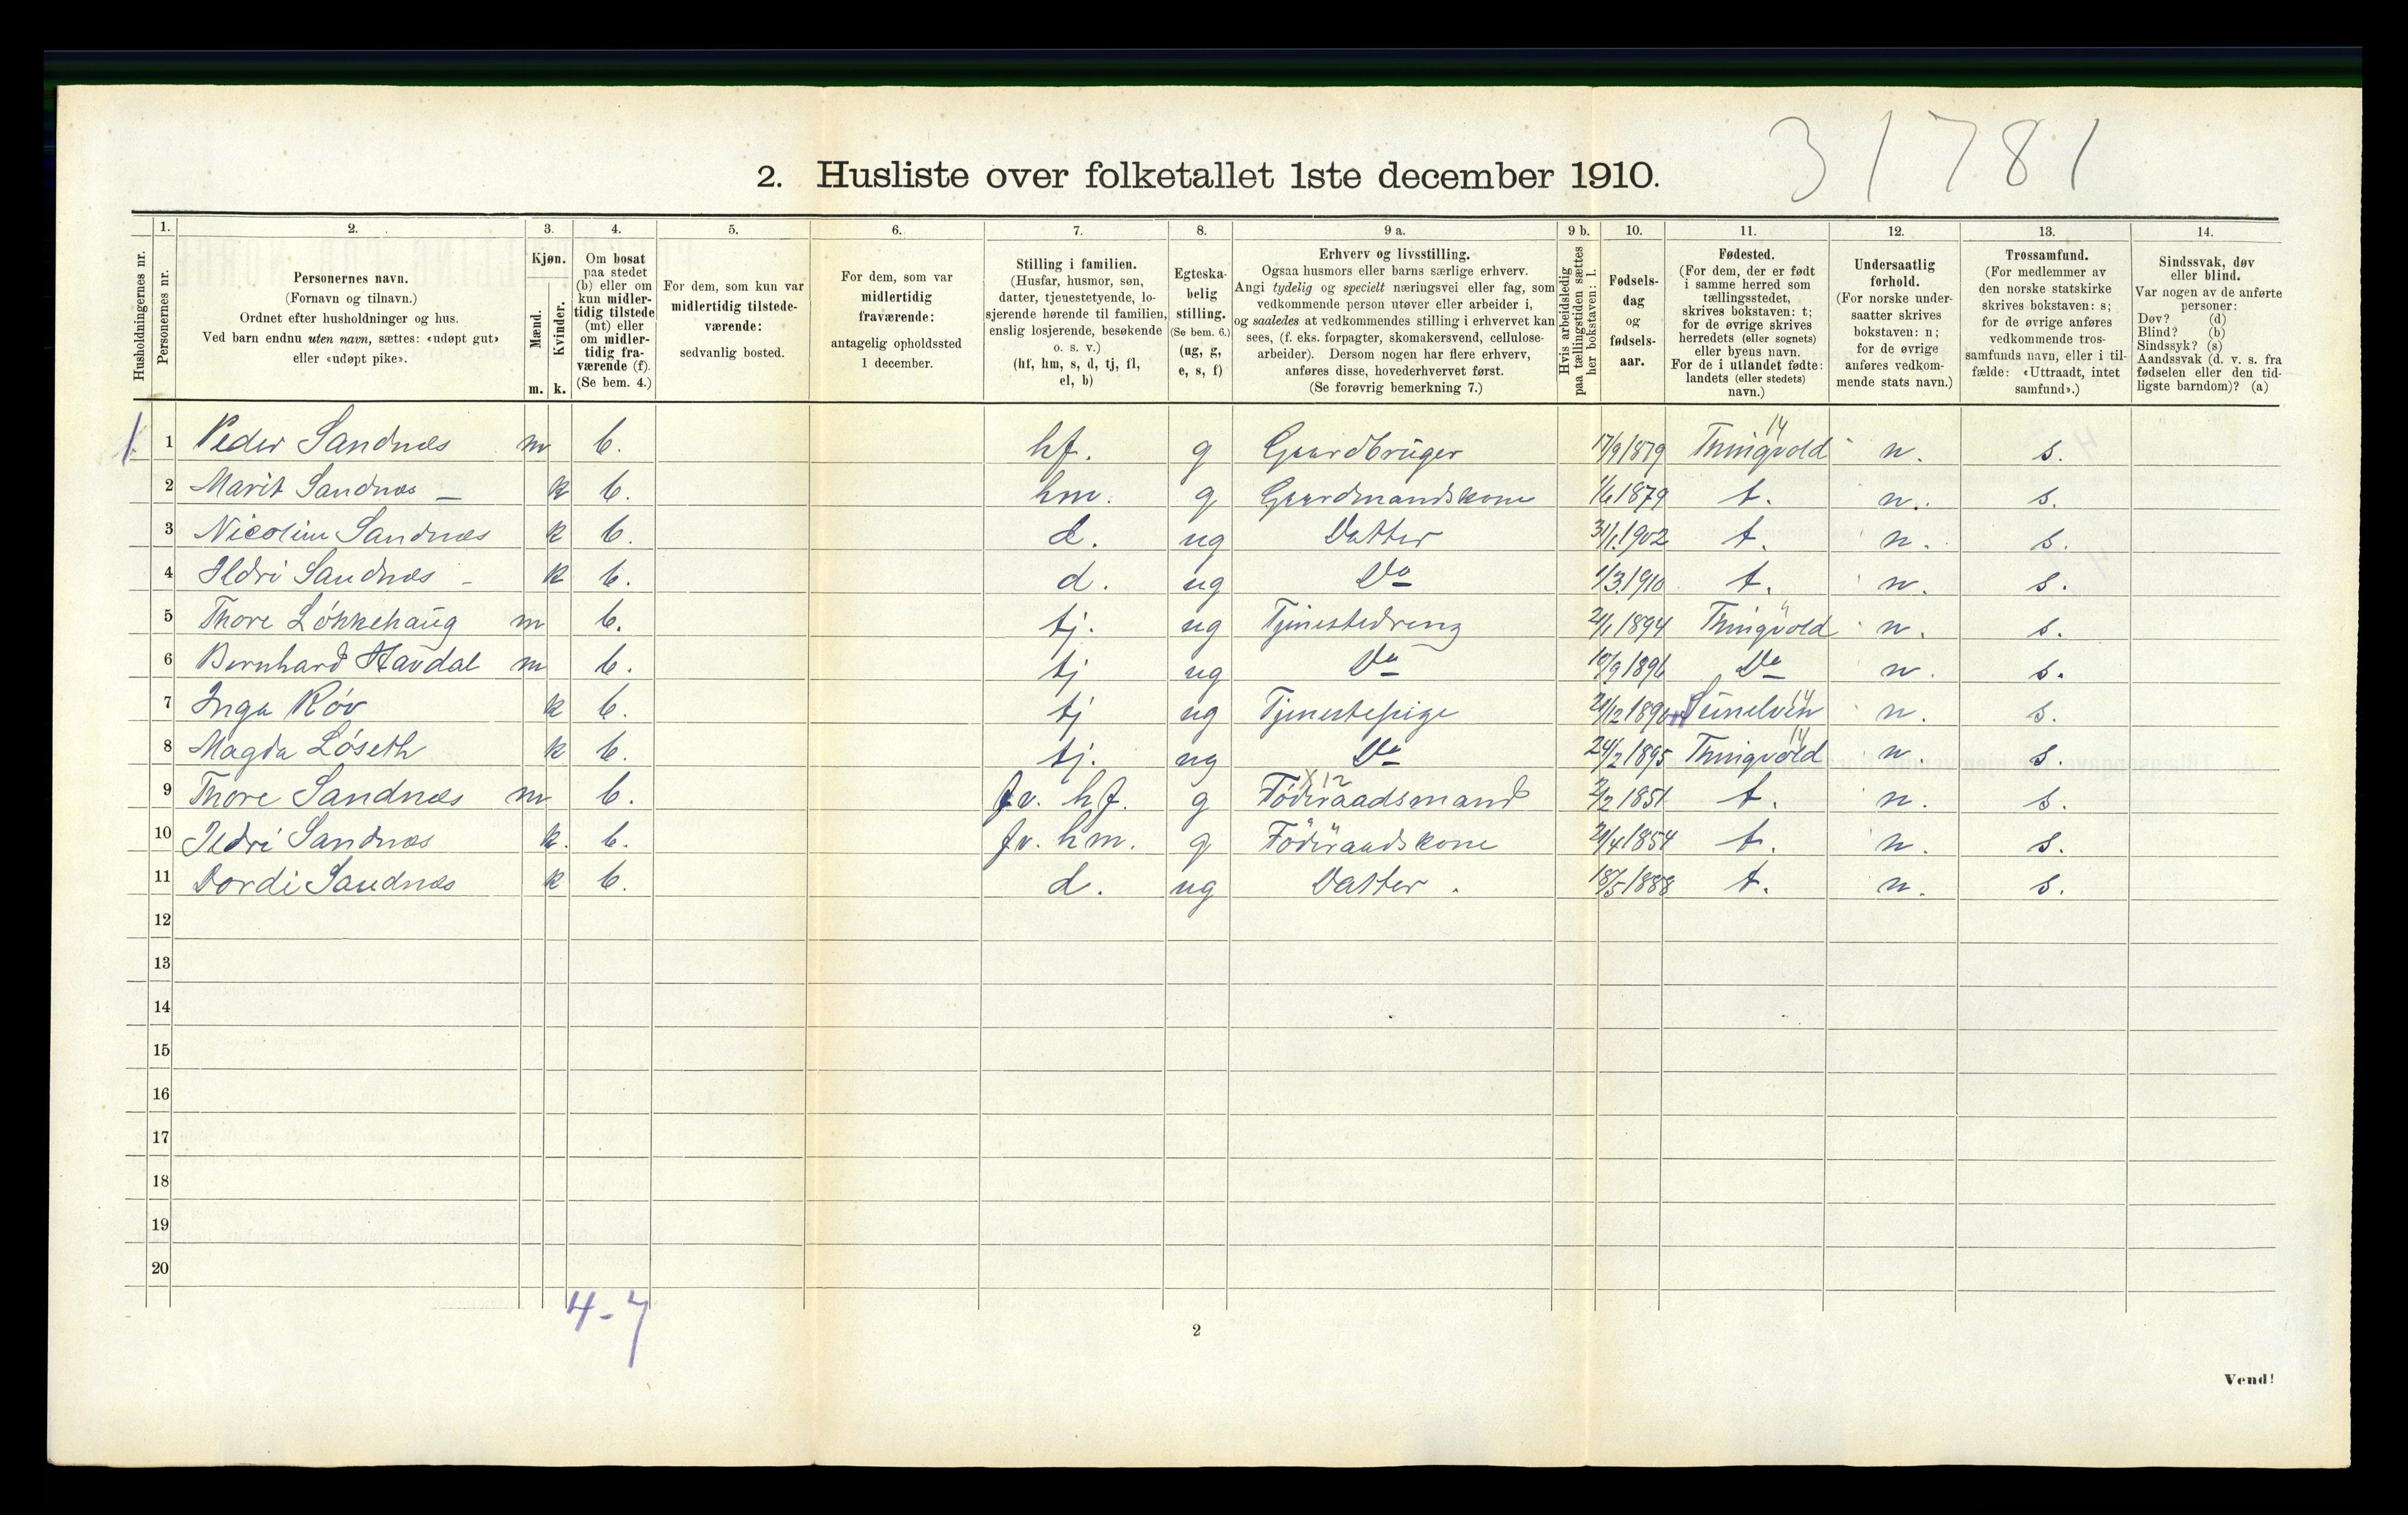 31781
2. Husliste over folketallet 1ste december 1910.
1. 2. 3. 4. 5. 6. 7. 8. 9 a. 9 b. 10. 11. 12. 13. 14.
Husholdningernes nr.
Personernes nr.
Personernes navn.
(Fornavn og tilnavn.)
Ordnet efter husholdninger og hus.
Ved barn endnu uten navn, sættes: «udøpt gut»
eller «udøpt pike».
Kjøn.
Mænd.
Kvinder.
m. k.
Om bosat
paa stedet
(b) eller om
kun midler-
tidig tilstede
(mt) eller
om midler-
tidig fra-
værende (f).
(Se bem. 4.)
For dem, som kun var
midlertidig tilstede-
værende:
sedvanlig bosted.
For dem, som var
midlertidig
fraværende:
antagelig opholdssted
1 december.
Stilling i familien.
(Husfar, husmor, søn,
datter, tjenestetyende, lo-
sjerende hørende til familien,
enslig losjerende, besøkende
o. s. v.)
(hf, hm, s, d, tj, fl,
el, b)
Egteska-
belig
stilling.
(Se bem. 6.)
(ug, g,
e, s, f)
Erhverv og livsstilling.
Ogsaa husmors eller barns særlige erhverv.
Angi tydelig og specielt næringsvei eller fag, som
vedkommende person utøver eller arbeider i,
og saaledes at vedkommendes stilling i erhvervet kan
sees, (f. eks. forpagter, skomakersvend, cellulose-
arbeider). Dersom nogen har flere erhverv,
anføres disse, hovederhvervet først.
(Se forøvrig bemerkning 7.)
Hvis arbeidsledig
paa tællingstiden sættes
her bokstaven: l.
Fødsels-
dag
og
fødsels-
aar.
Fødested.
(For dem, der er født
i samme herred som
tællingsstedet,
skrives bokstaven: t;
for de øvrige skrives
herredets (eller sognets)
eller byens navn.
For de i utlandet fødte:
landets (eller stedets)
navn.)
Undersaatlig
forhold.
(For norske under-
saatter skrives
bokstaven: n;
for de øvrige
anføres vedkom-
mende stats navn.)
Trossamfund.
(For medlemmer av
den norske statskirke
skrives bokstaven: s;
for de øvrige anføres
vedkommende tros-
samfunds navn, eller i til-
fælde: «Uttraadt, intet
samfund».)
Sindssvak, døv
eller blind.
Var nogen av de anførte
personer:
Døv? (d)
Blind? (b)
Sindssyk? (s)
Aandssvak (d. v. s. fra
fødselen eller den tid-
ligste barndom)? (a)
14
1. 1 Peder Sandnæs m b. hf. g Gaardbruger 17/9 1879 Thingvold n. s.
2 Marit Sandnæs – k b. hm. g Gaardmandskone 1/6 1879 t. n. s.
3 Nicoline Sandnæs k b. d. ug Datter 31/1 1902 t. n. s.
4 Ildri Sandnæs - k b. d. ug Do 1/3 1910 t. n. s.
5 Thore Løkkehaug m b. tj. ug Tjenestedreng 21/1 1894 Thingvold n. s.
6 Bernhard Havdal m b. tj ug Do 10/9 1896 Do n. s.
14
7 Inga Røv k b. tj ug Tjenestepige 21/12 1890 n. s.
14
8 Magda Løseth k b. tj. ug Do 24/2 1895 Thingvold n. s.
X 12
9 Thore Sandnæs m b. fv. hf. g Føderaadsmand 2/2 1851 t. n. s.
10 Ildri Sandnæs k. b. fv. hm. g Föderaadskone 21/4 1854 t. n. s.
11 Dordi Sandnæs k b. d. ug Datter. 18/5 1888 t. n. s.
12
13
14
15
16
17
18
19
20
4-7
2
Vend!